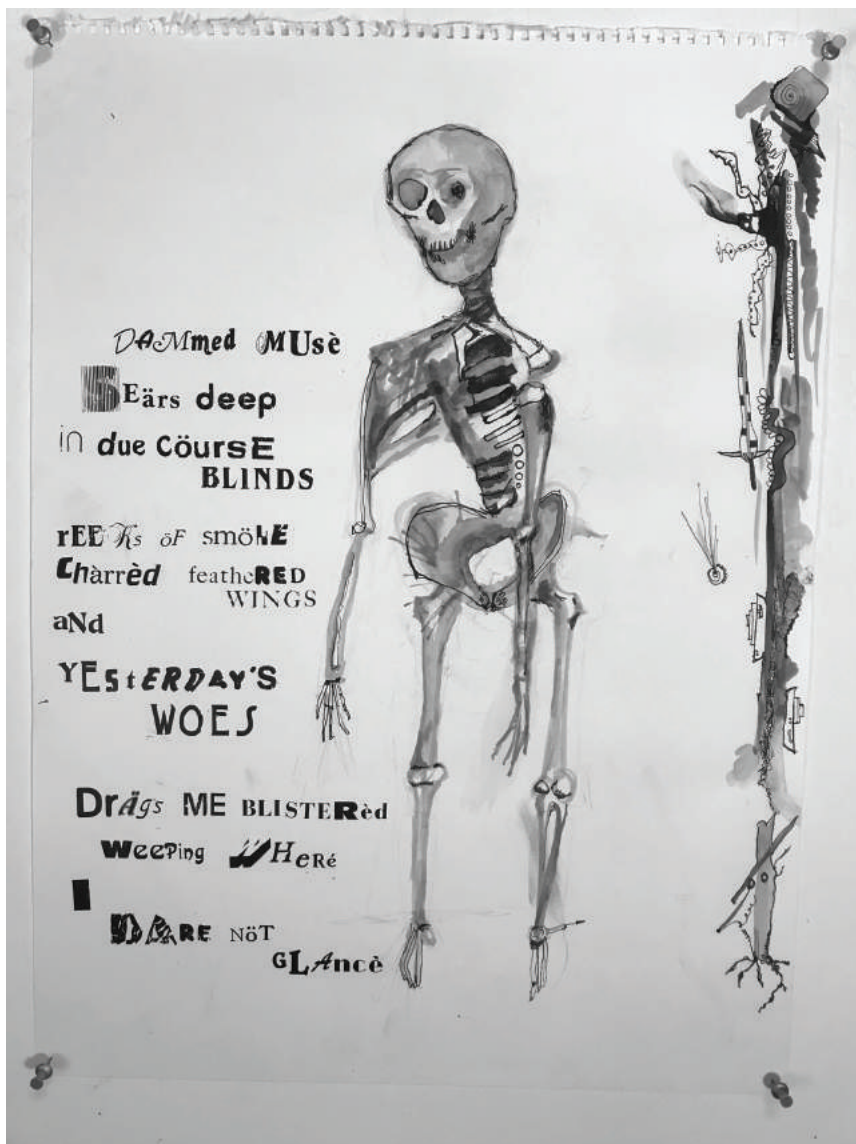 DAMmed MUsè
SEärs deep
in due CöursE
BLINDS
rEEKs öF smöKE
Chàrrèd featheRED
WINGS
aNd
YEStERDAY'S
WOES
Drägs ME BLISTERèd
WeePing WHeRé
I
DARE NöT
GLAncè